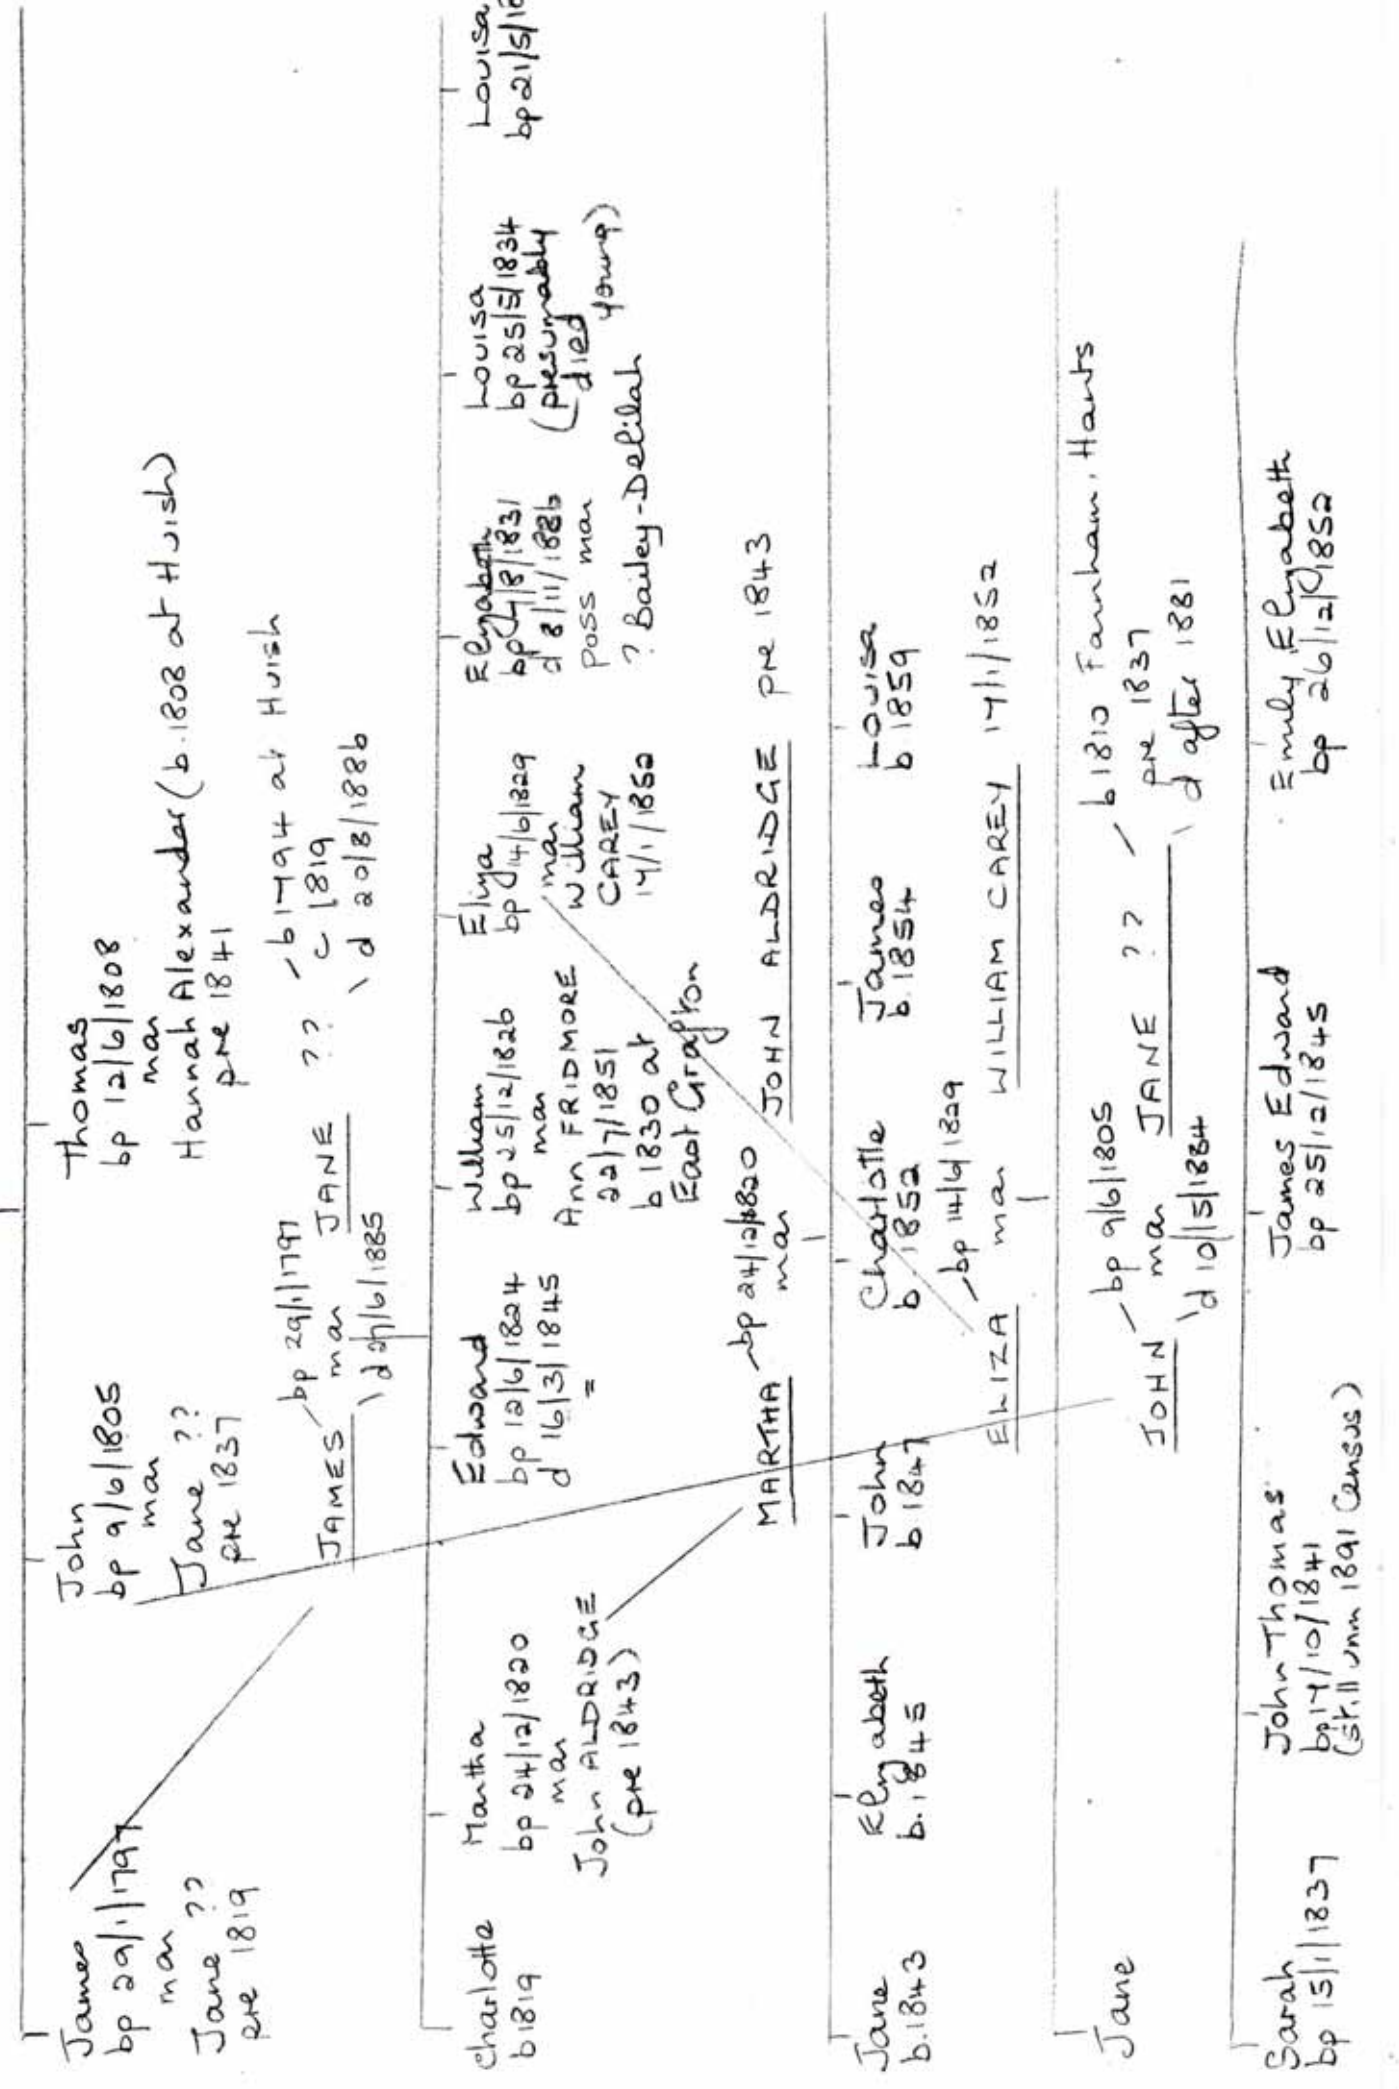 James
bp 29/1/1797
mar
Jane ??
pre 1819
John
bp 9/6/1805
mar
Jane ??
pre 1837
Thomas
bp 12/6/1808
mar
Hannah Alexander (b.1808 at Huish)
pre 1841
JAMES
bp 29/1/1797
mar
d 27/6/1885
JANE ??
b 1794 at Huish
c 1819
d 20/8/1886
Charlotte
b 1819
Martha
bp 24/12/1820
mar
John ALDRIDGE
(pre 1843)
Edward
bp 12/6/1824
d 16/3/1845
=
William
bp 25/12/1826
mar
Ann FRIDMORE
22/7/1851
b 1830 at
East Grafton
Eliza
bp 14/6/1829
mar
William
CAREY
17/1/1852
Elizabeth
bp 4/8/1831
d 8/11/1886
poss mar
? Bailey-Delilah
Louisa
bp 25/5/1834
(presumably
died
young)
Louisa
bp 21/5/18
MARTHA
bp 24/12/1820
mar
JOHN ALDRIDGE pre 1843
Jane
b.1843
Elizabeth
b.1845
John
b 1847
Charlotte
b.1852
James
b.1854
Louisa
b 1859
ELIZA
bp 14/6/1829
mar WILLIAM CAREY 17/1/1852
Jane
JOHN
bp 9/6/1805
mar
d 10/5/1884
JANE ??
b 1810 Farnham, Hants
pre 1837
d after 1881
Sarah
bp 15/1/1837
John Thomas
bp 17/10/1841
(still unm 1891 Census)
James Edward
bp 25/12/1845
Emily Elizabeth
bp 26/12/1852